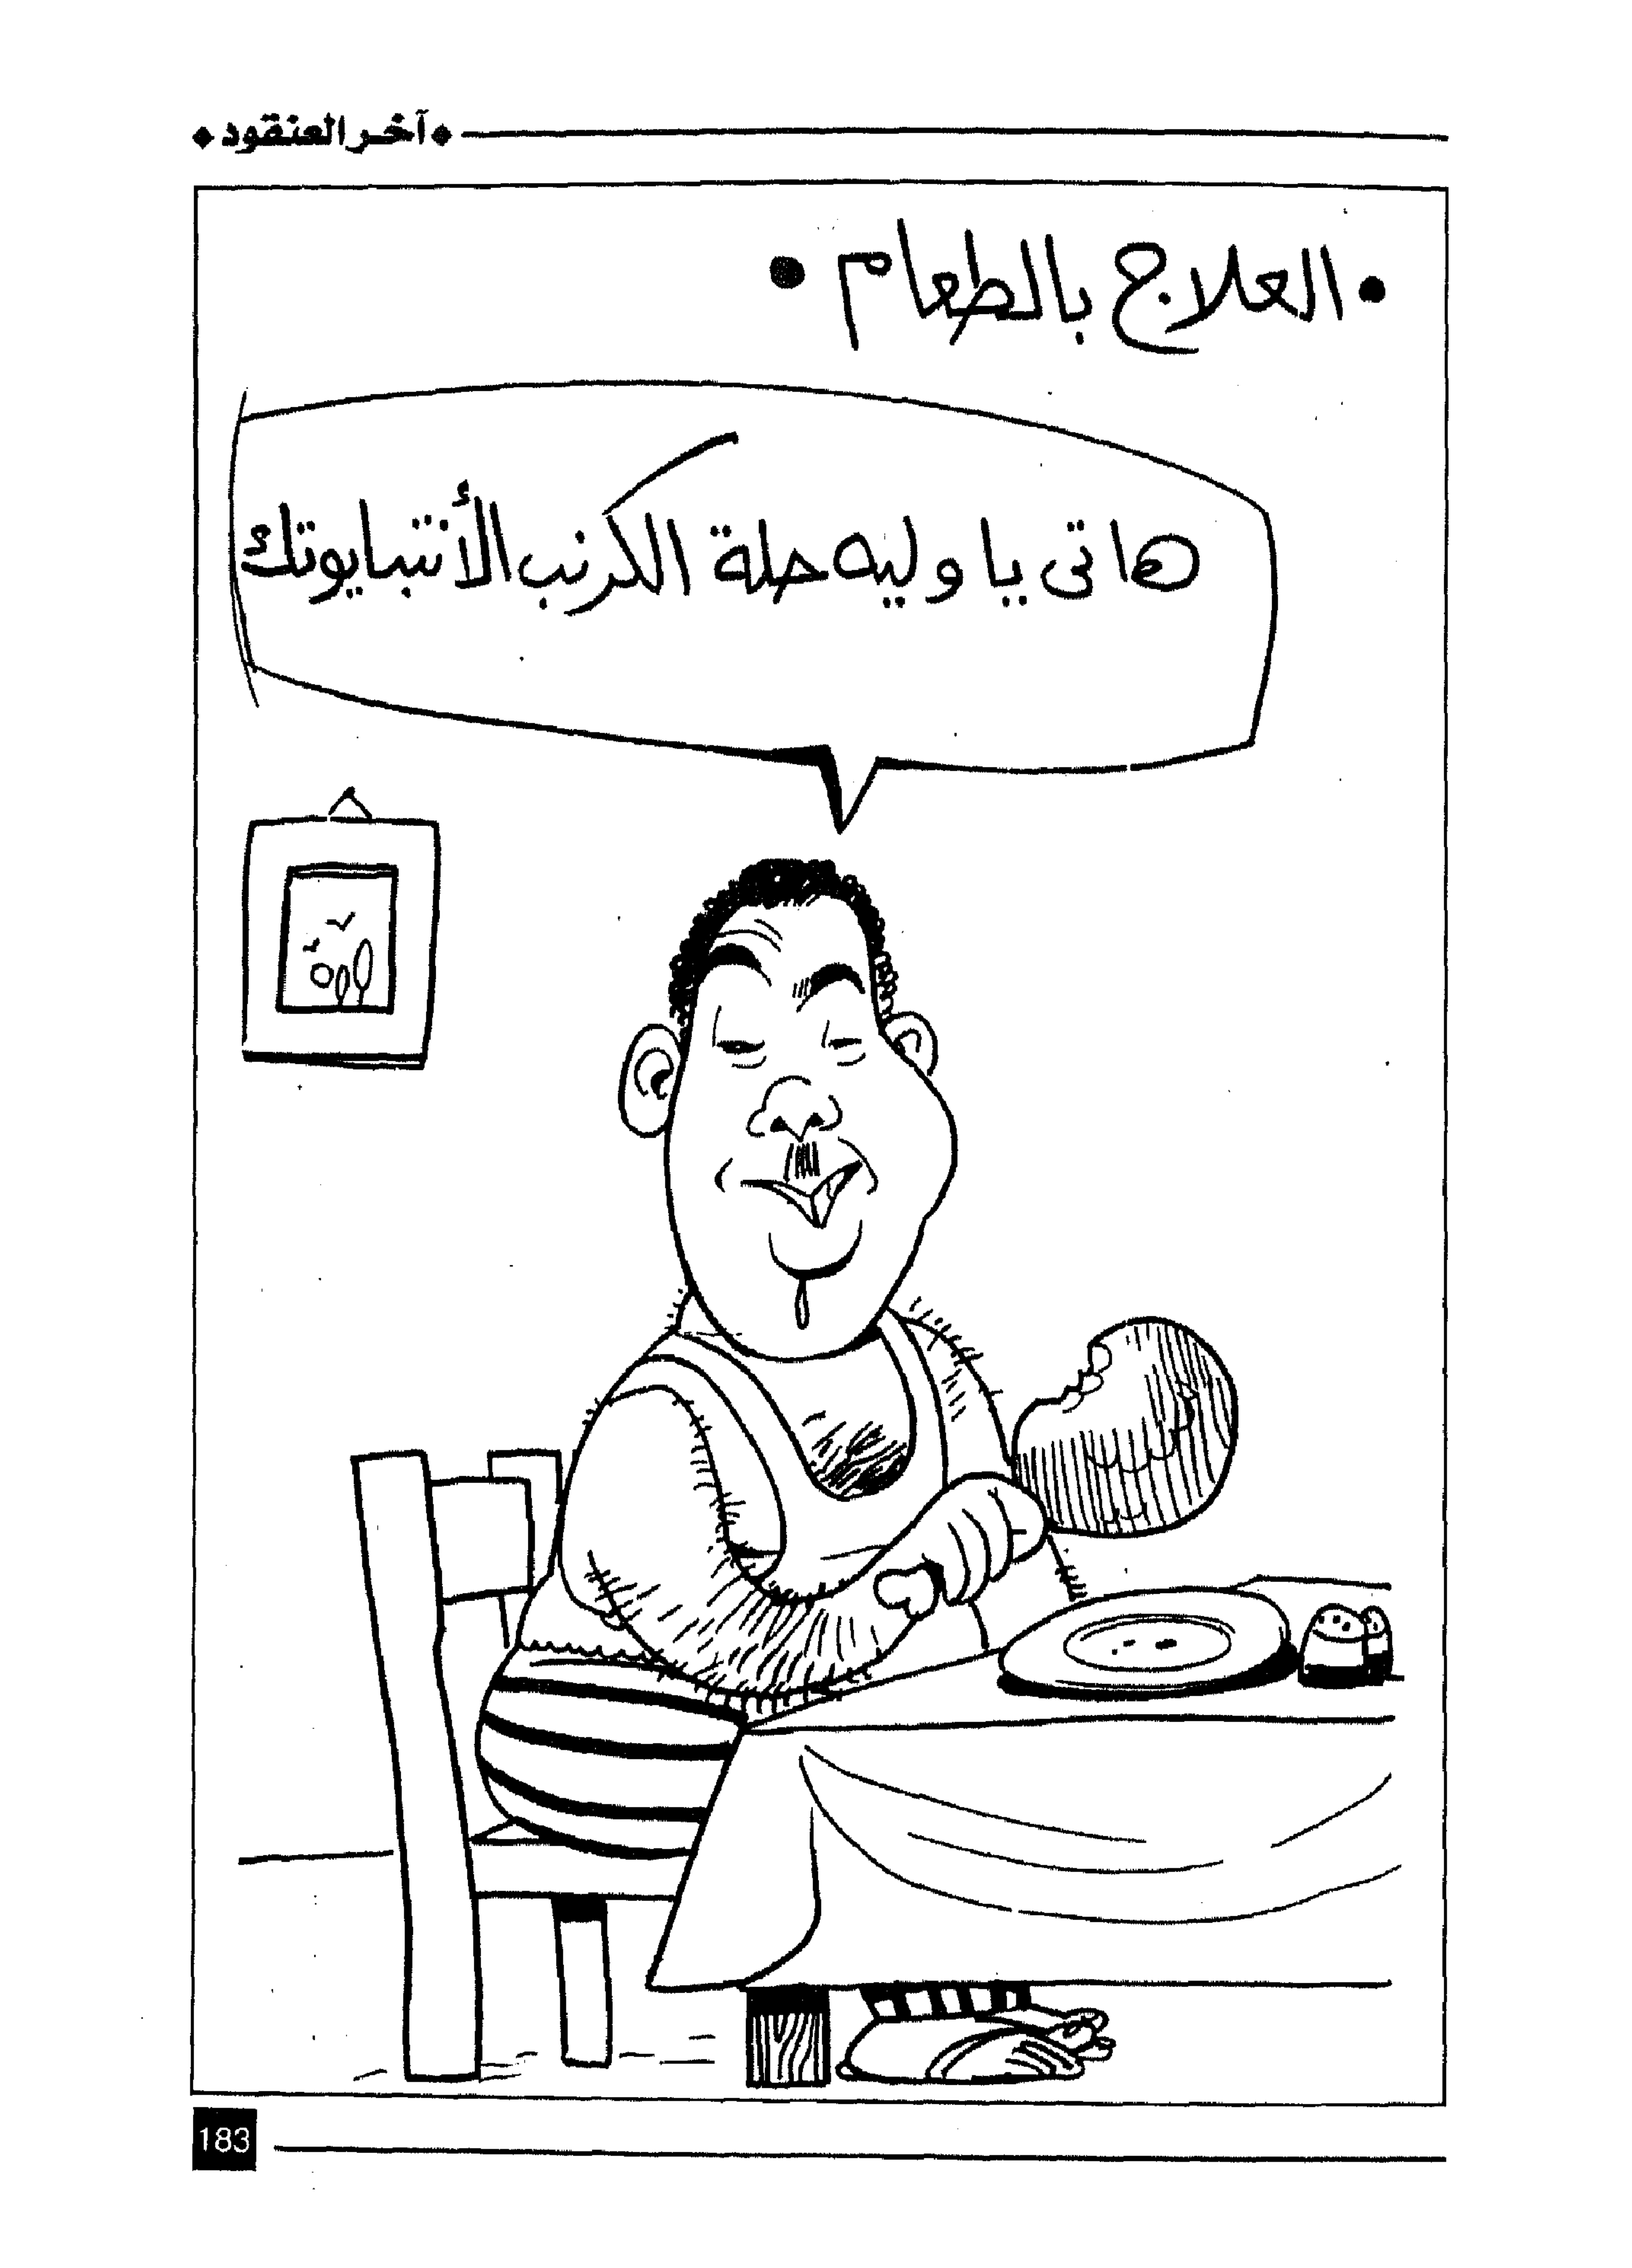 آخر العنقود
• العلاج بالطعام •
هاتى يا وليه حلة الكرنب الأنتيبايوتك
183